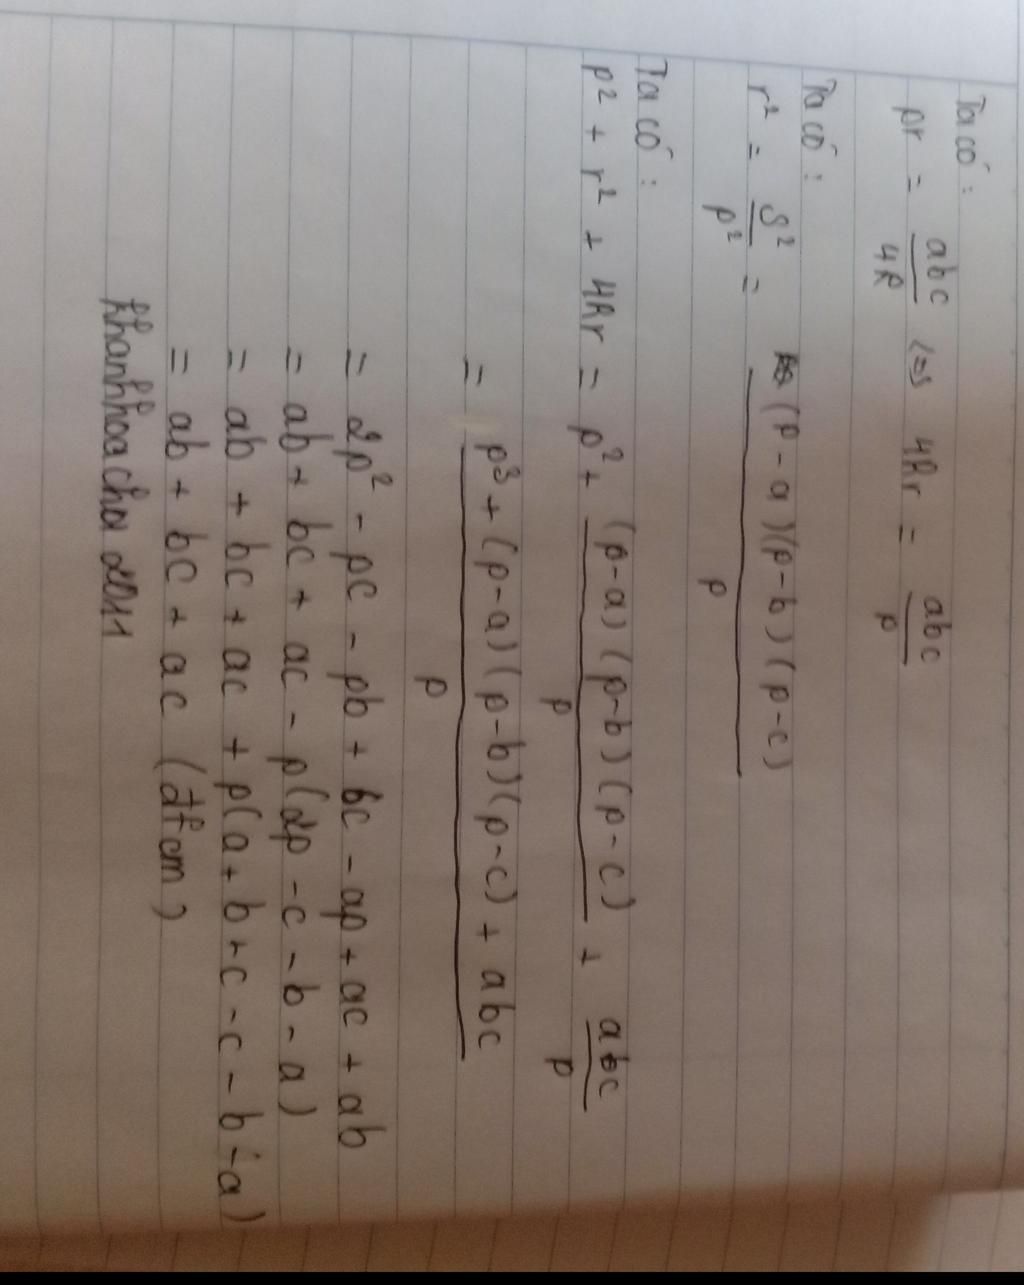 Ta có :
pr = abc/4R <=> 4Rr = abc/p
Ta có :
r² = S²/p² = (p-a)(p-b)(p-c)/p
Ta có :
p² + r² + 4Rr = p² + (p-a)(p-b)(p-c)/p + abc/p
= p³ + (p-a)(p-b)(p-c) + abc/p
= 2p² - pc - pb + bc - ap + ac + ab
= ab + bc + ac - p(2p - c - b - a)
= ab + bc + ac + p(a + b + c - c - b - a)
= ab + bc + ac (đfcm)
khanhhoacha 2011